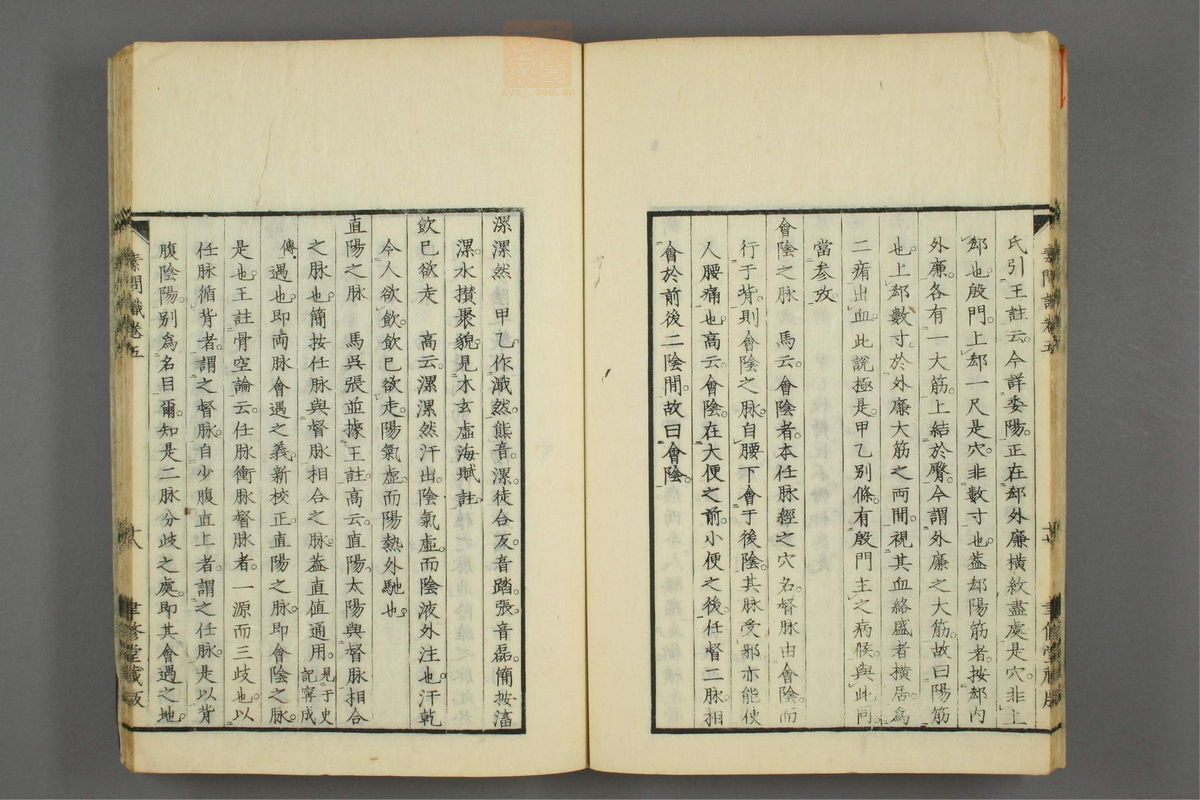 氏引王註云今詳委陽正在郄外廉横紋盡處是穴非上
郄也殷門上郄一尺是穴非數寸也蓋郄陽筋者按郄内
外廉各有一大筋上結於臀今謂外廉之大筋故曰陽筋
也上郄數寸於外廉大筋之両間視其血絡盛者横居為
二痏出血此說極是甲乙别條有殷門主之病候與此同
當参攷
會陰之脉 馬云會陰者本任脉經之穴名督脉由會陰而
行于背則會陰之脉自腰下會于後陰其脉受邪亦能使
人腰痛也高云會陰在大便之前小便之後任督二脉相
會於前後二陰間故曰會陰
素問識卷五
聿修堂藏版
漯漯然 甲乙作濈然熊音漯徒合反音踏張音磊簡按
漯水攅聚貌見木玄虛海賦註
飲已欲走 高云漯漯然汗出陰氣虛而陰液外注也汗乾
今人欲飲飲已欲走陽氣虛而陽熱外馳也
直陽之脉 馬吳張並據王註高云直陽太陽與督脉相合
之脉也簡按任脉與督脉相合之脉蓋直值通用見于史記寧成
傳遇也即両脉會遇之義新校正直陽之脉即會陰之脉
是也王註骨空論云任脉衝脉督脉者一源而三歧也以
任脉循背者謂之督脉自少腹直上者謂之任脉是以背
腹陰陽别為名目爾知是二脉分歧之處即其會遇之地
素問識卷五
十八
聿修堂藏版